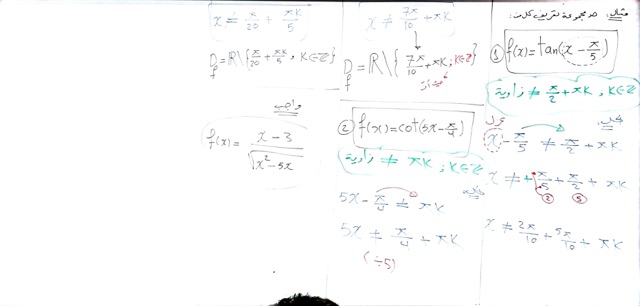 مثال: حدد مجموعة تعريف كلًا من:
① f(x) = tan(x − π/5)
زاوية ≠ π/2 + πk ; k∈Z
x − π/5 ≠ π/2 + πk
x ≠ + π/5 + π/2 + πk
② ⑤
x ≠ 2π/10 + 5π/10 + πk
x ≠ 7π/10 + πk
D_f = R \ { 7π/10 + πk ; k∈Z }
② f(x) = cot(5x − π/4)
زاوية ≠ πk ; k∈Z
5x − π/4 ≠ πk
5x ≠ π/4 + πk
(÷5)
x ≠ π/20 + πk/5
D_f = R \ { π/20 + πk/5 , k∈Z }
واجب
f(x) = x − 3 / √(x² − 5x)